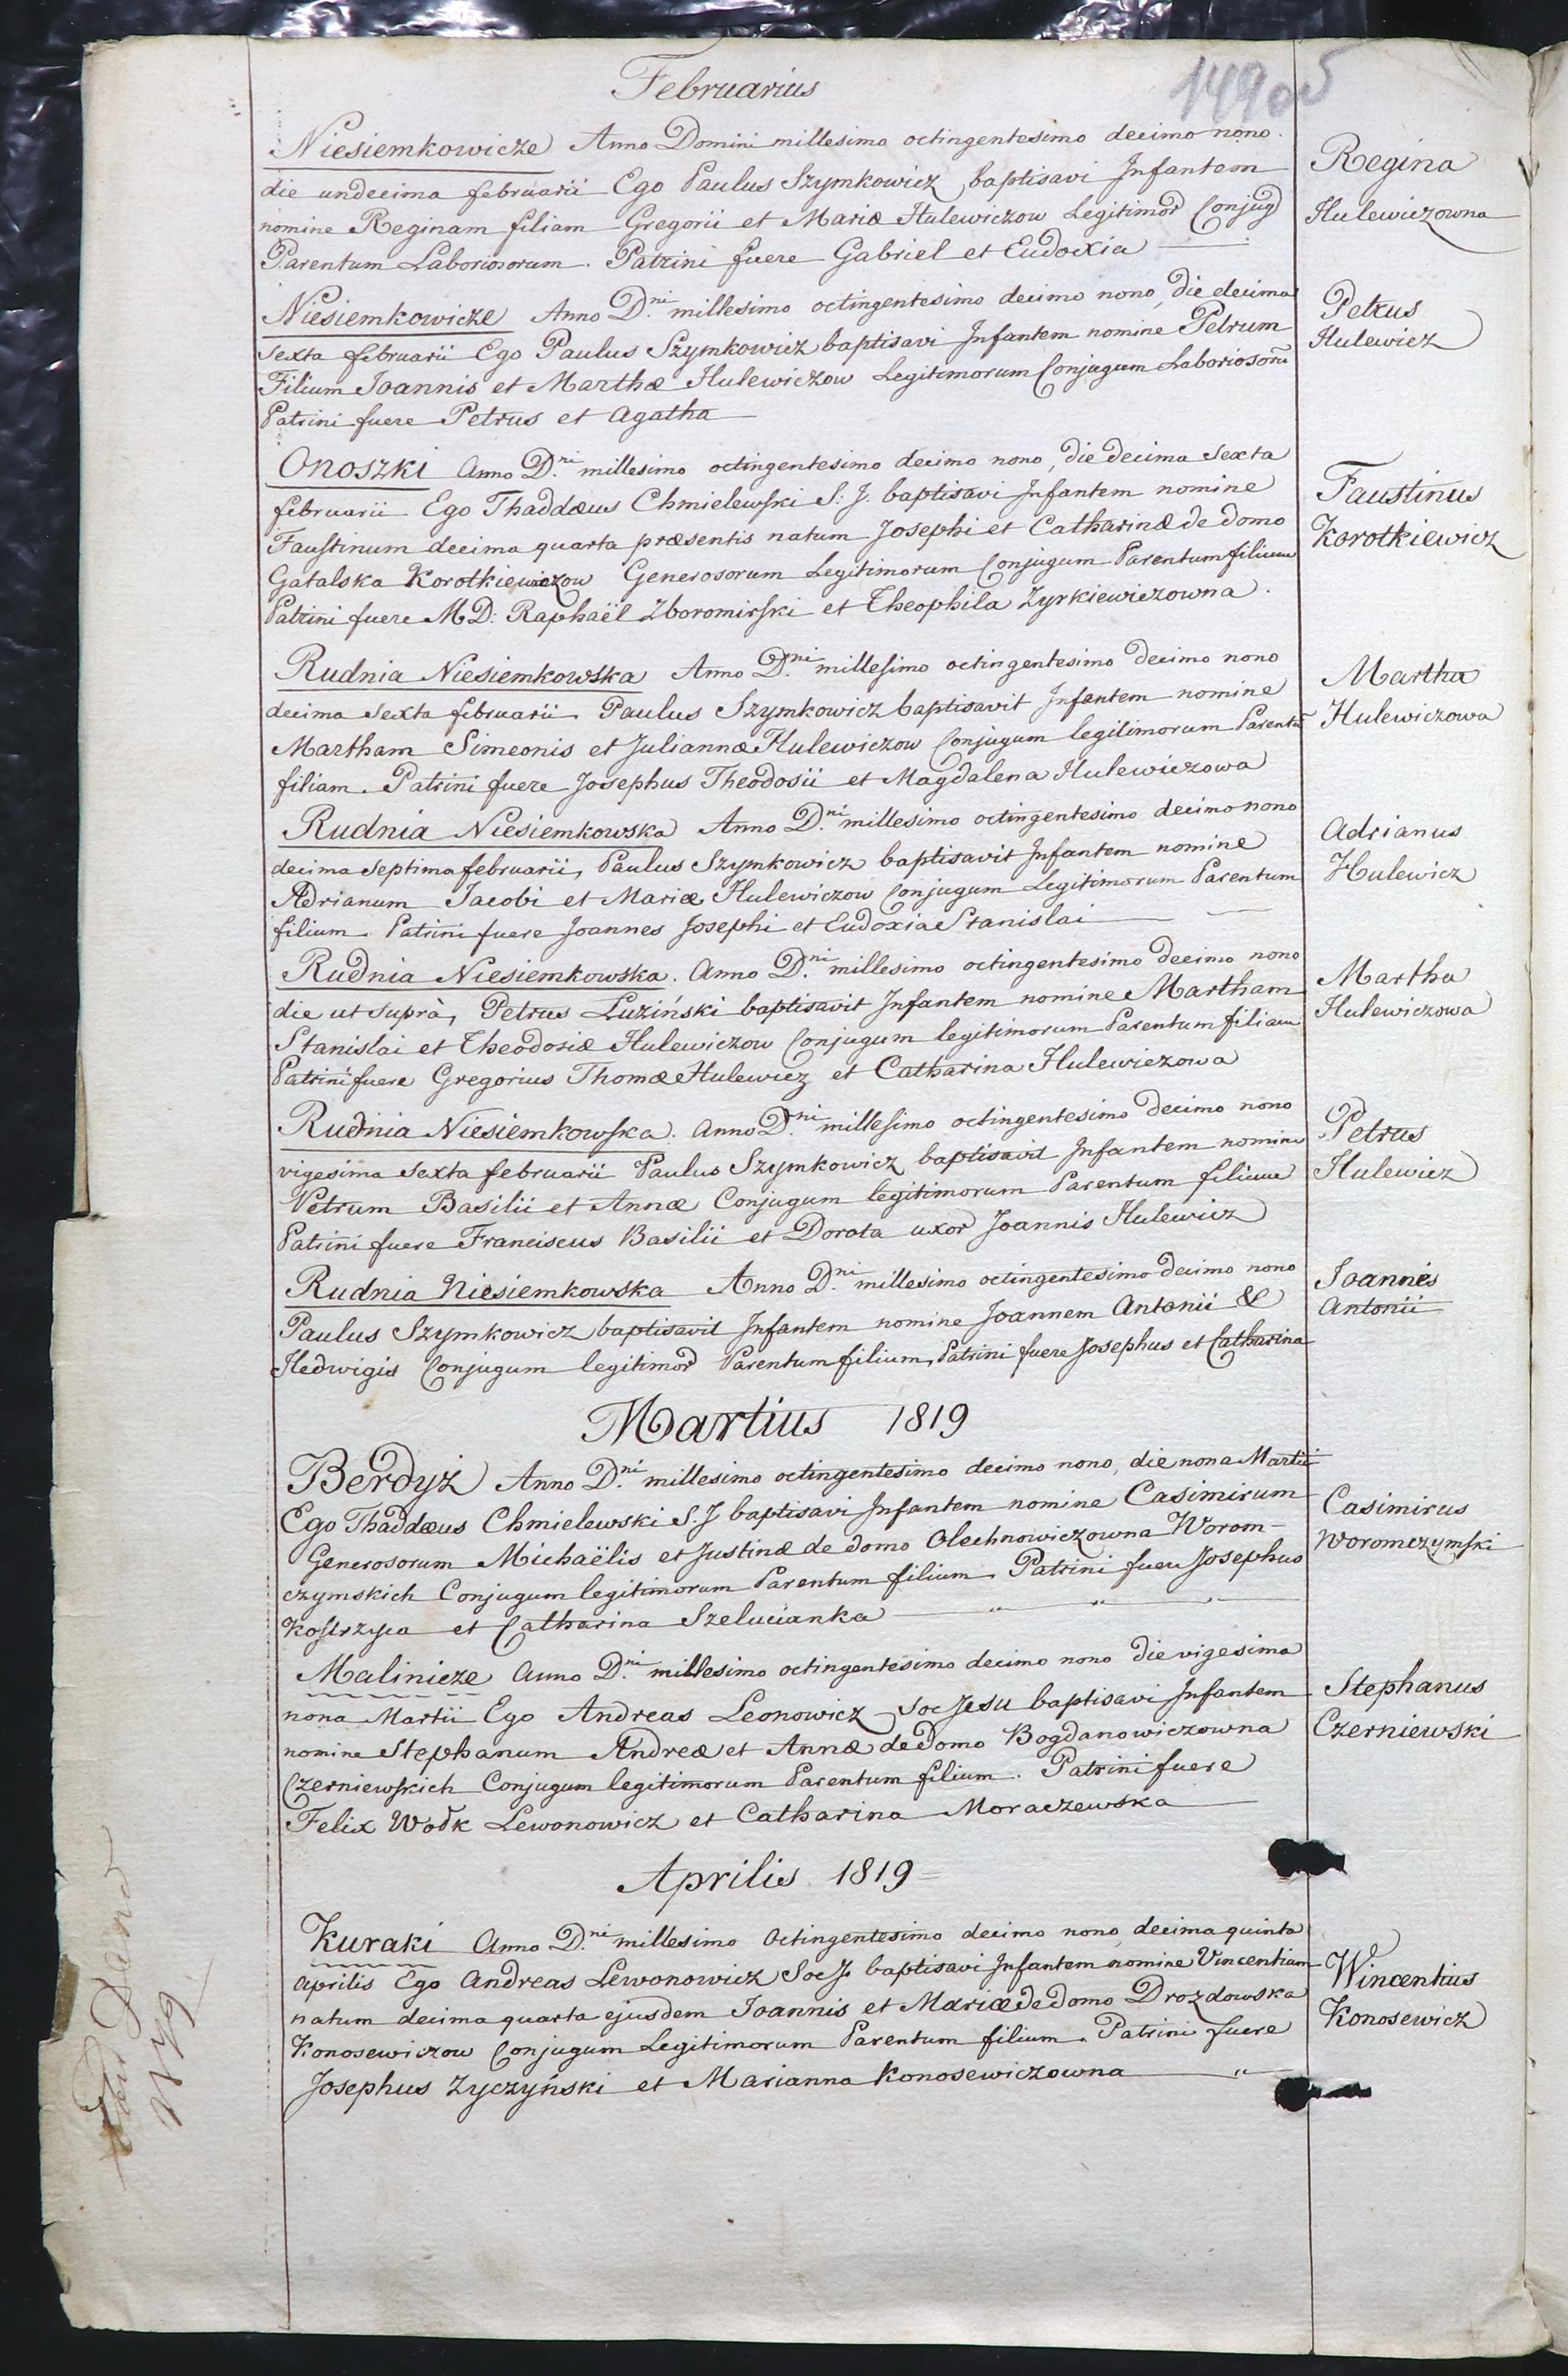 Februarius
Niesiemkowicze Anno Domini millesimo octingentesimo decimo nono.
die undecima februarii Ego Paulus Szymkowicz baptisavi Infantem
nomine Reginam filiam Gregorii et Mariæ Hulewiczow Legitimor Conjug
Parentum Laboriosorum. Patrini fuere Gabriel et Eudoxia
Regina
Hulewiczowna
Niesiemkowicze Anno D.ni millesimo octingentesimo decimo nono, die decima
sexta februarii Ego Paulus Szymkowicz baptisavi Infantem nomine Petrum
Filium Joannis et Marthæ Hulewiczow Legitimorum Conjugum Laboriosorũ
Patrini fuere Petrus et Agatha
Petrus
Hulewicz
Onoszki Anno D.ni millesimo octingentesimo decimo nono, die decima sexta
februarii Ego Thaddæus Chmielewski S: J. baptisavi Infantem nomine
Faustinum decima quarta præsentis natum Josephi et Catharinæ de domo
Gatalska Korotkiewiczow Generosorum Legitimorum Conjugum Parentum filium
Patrini fuere M D: Raphaël Zboromirski et Theophila Zyrkiewiczowna.
Faustinus
Korotkiewicz
Rudnia Niesiemkowska Anno D.ni millesimo octingentesimo decimo nono
decima sexta februarii Paulus Szymkowicz baptisavit Infantem nomine
Martham Simeonis et Juliannæ Hulewiczow Conjugum legitimorum Parentũ
filiam. Patrini fuere Josephus Theodosii et Magdalena Hulewiczowa
Martha
Hulewiczowa
Rudnia Niesiemkowska Anno D.ni millesimo octingentesimo decimo nono
decima septima februarii, Paulus Szymkowicz baptisavit Infantem nomine
Adrianum Jacobi et Mariæ Hulewiczow Conjugum Legitimorum Parentum
filium. Patrini fuere Joannes Josephi et Eudoxia Stanislai
Adrianus
Hulewicz
Rudnia Niesiemkowska. Anno D.ni millesimo octingentesimo decimo nono
die ut suprà, Petrus Luziński baptisavit Infantem nomine Martham
Stanislai et Theodosiæ Hulewiczow Conjugum legitimorum Parentum filiam
Patrini fuere Gregorius Thomæ Hulewicz et Catharina Hulewiczowa
Martha
Hulewiczowa
Rudnia Niesiemkowska. Anno D.ni millesimo octingentesimo decimo nono
vigesima sexta februarii Paulus Szymkowicz baptisavit Infantem nomine
Petrum Basilii et Annæ Conjugum legitimorum Parentum filium
Patrini fuere Franciscus Basilii et Dorota uxor Joannis Hulewicz
Petrus
Hulewicz
Rudnia Niesiemkowska Anno D.ni millesimo octingentesimo decimo nono
Paulus Szymkowicz baptisavit Infantem nomine Joannem Antonii &
Hedwigis Conjugum legitimor Parentum filium, Patrini fuere Josephus et Catharina
Joannes
Antonii
Martius 1819
Berdyż Anno D.ni millesimo octingentesimo decimo nono, die nona Martii
Ego Thaddæus Chmielewski S. J baptisavi Infantem nomine Casimirum
Generosorum Michaëlis et Justinæ de domo Olechnowiczowna Worom-
czymskich Conjugum legitimorum Parentum filium. Patrini fuere Josephus
Kostrzyca et Catharina Szelucianka
Casimirus
Woromczymski
Malinicze Anno D.ni millesimo octingentesimo decimo nono die vigesima
nona Martii Ego Andreas Leonowicz Soc Jesu baptisavi Infantem
nomine Stephanum Andreæ et Annæ de domo Bogdanowiczowna
Czerniewskich Conjugum legitimorum Parentum filium. Patrini fuere
Felix Wodk Lewonowicz et Catharina Moraczewska
Stephanus
Czerniewski
Aprilis 1819
Kuraki Anno D.ni millesimo Octingentesimo decimo nono, decima quinta
aprilis Ego Andreas Lewonowicz Soc J. baptisavi Infantem nomine Vincentium
natum decima quarta ejusdem Joannis et Mariæ de domo Drozdowska
Konosewiczow Conjugum Legitimorum Parentum filium. Patrini fuere
Josephus Zyczyński et Marianna Konosewiczowna
Wincentius
Konosewicz